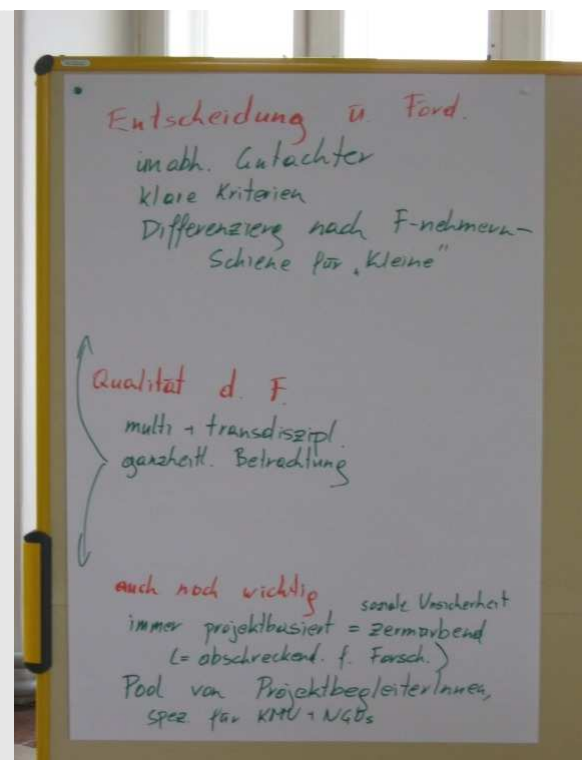 Entscheidung ü. Förd.
unabh. Gutachter
klare Kriterien
Differenzierg nach F-nehmern -
Schiene für „Kleine"
Qualität d. F.
multi + transdiszipl.
ganzheitl. Betrachtung
auch noch wichtig
soziale Unsicherheit
immer projektbasiert = zermürbend
(= abschreckend. f. Forsch.)
Pool von ProjektbegleiterInnen,
spez. für KMU + NGOs